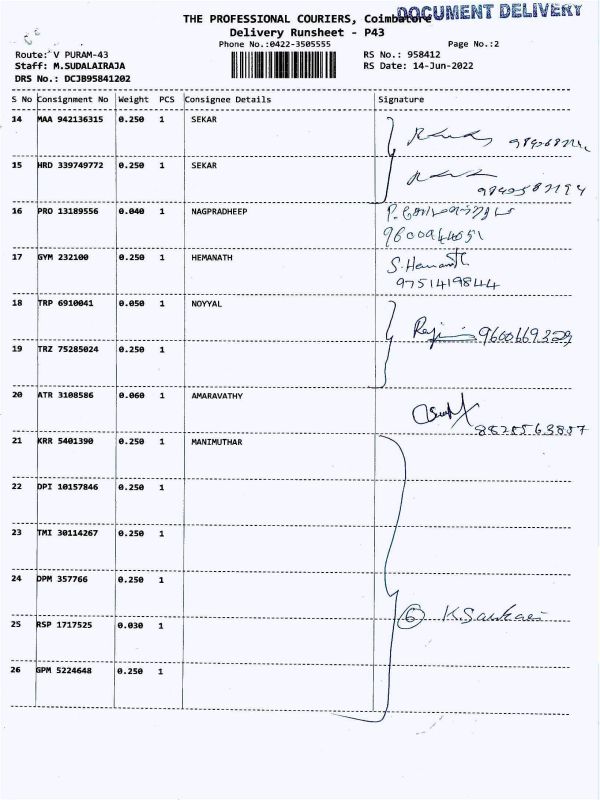 THE PROFESSIONAL COURIERS, Coimbatore
DOCUMENT DELIVERY
Delivery Runsheet - P43
Phone No.:0422-3505555
Page No.:2
Route: V PURAM-43
RS No.: 958412
Staff: M.SUDALAIRAJA
RS Date: 14-Jun-2022
DRS No.: DCJB95841202
S No Consignment No Weight PCS Consignee Details Signature
14 MAA 942136315 0.250 1 SEKAR
15 HRD 339749772 0.250 1 SEKAR
16 PRO 13189556 0.040 1 NAGPRADHEEP
17 GYM 232100 0.250 1 HEMANATH S. Hemanth
9751419844
18 TRP 6910041 0.050 1 NOYYAL
19 TRZ 75285024 0.250 1
20 ATR 3108586 0.060 1 AMARAVATHY
21 KRR 5401390 0.250 1 MANIMUTHAR
22 DPI 10157846 0.250 1
23 TMI 30114267 0.250 1
24 DPM 357766 0.250 1
25 RSP 1717525 0.030 1 6
26 GPM 5224648 0.250 1